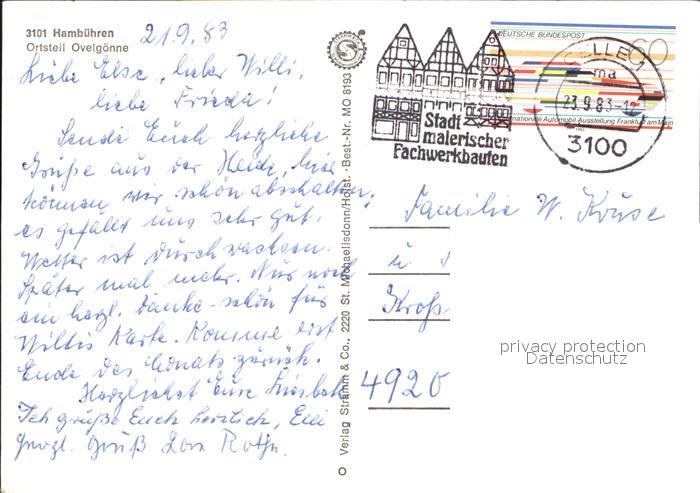 3101 Hambühren
Ortsteil Ovelgönne
21.9.83
Liebe Else, lieber Willi,
liebe Frieda!
Sende Euch herzliche
Grüße aus der Heide, hier
können wir schön abschalten,
es gefällt uns sehr gut.
Wetter ist durchwachsen.
Später mal mehr. Nur noch
ein herzl. Danke-schön für
Willis Karte. Komme erst
Ende des Monats zurück.
Herzlichst Eure Liesbeth
Ich grüße Euch herzlich, Elli
Herzl. Gruß
Verlag Stramm & Co., 2220 St. Michaelisdonn/Holst. · Best.-Nr. MO 8193
DEUTSCHE BUNDESPOST
60
Internationale Automobil-Ausstellung Frankfurt am Main
Stadt
malerischer
Fachwerkbauten
CELLE 1
ma
23.9.83-12
3100
Familie W. Kruse
u.
4920
privacy protection
Datenschutz